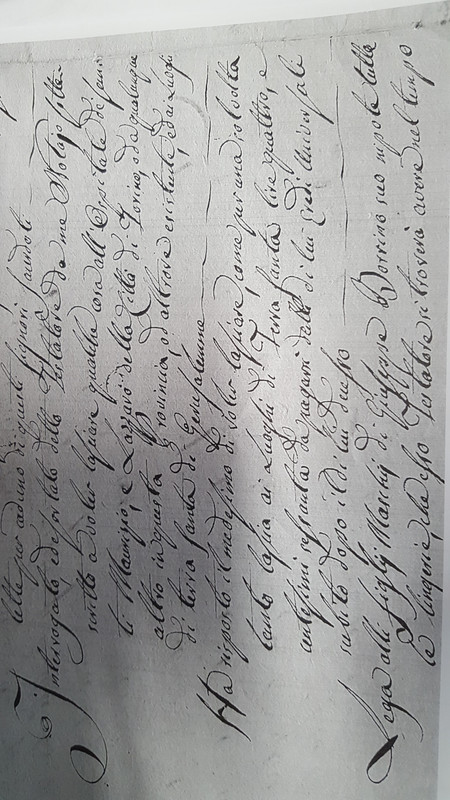 lette per aduno di questi signori facendoli
Interrogato, ed eccitato detto Sig.r Testatore da me Notajo sotto-
scritto a voler lasciare qualche cosa all'Ospitale de Santi
ti Maurizio, e Lazzaro della Città di Torino, od a qualunque
altro in questa Provincia, od altrove esistente, ed ai Luoghi
di terra santa di Gerusalemme
Ha risposto il medesimo di voler lasciare, come per una sol volta
tanto lascia ai Luoghi di Terra santa lire quattro, e
centesimi sessanta da pagarsi dalli di lui Eredi Universali
subito dopo il di lui decesso
Lega alli Figlj Maschj di Giuseppe Borrino suo nipote tutte
le lingerie, che esso Sig.r Testatore si troverà avere nel tempo